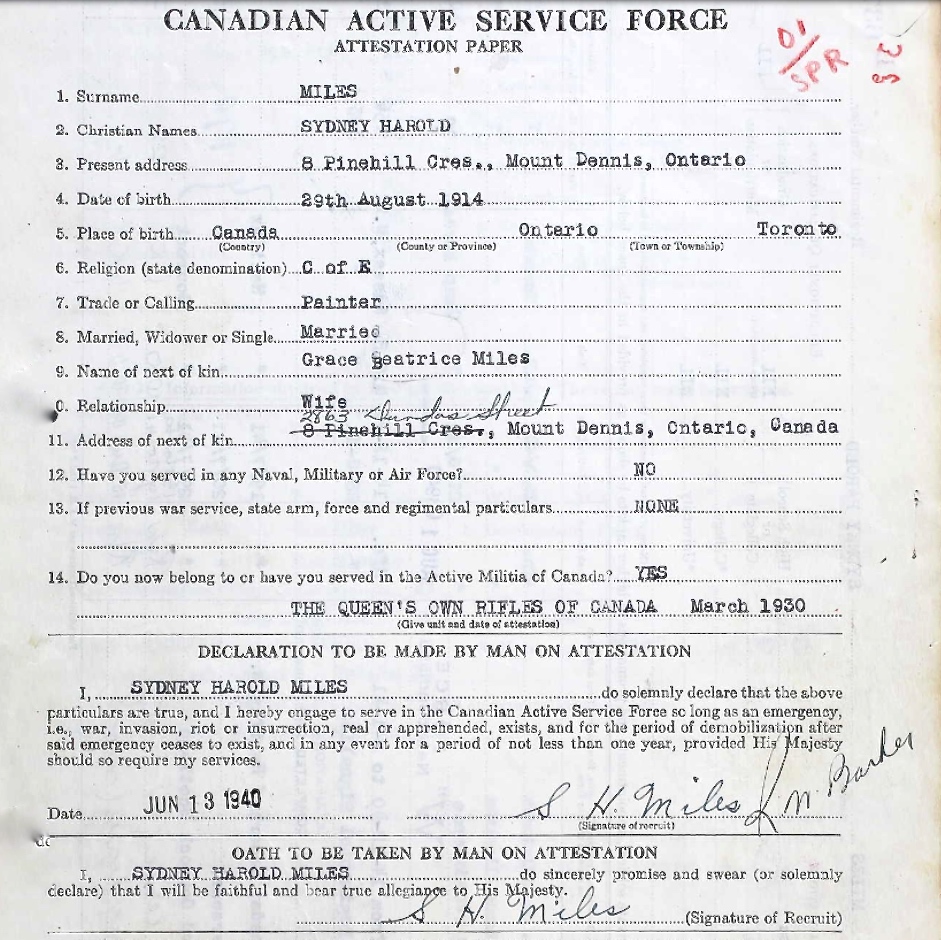 CANADIAN ACTIVE SERVICE FORCE
ATTESTATION PAPER
D1/SPR
1. Surname MILES
2. Christian Names SYDNEY HAROLD
3. Present address 8 Pinehill Cres., Mount Dennis, Ontario
4. Date of birth 29th August 1914
5. Place of birth Canada Ontario Toronto
(Country) (County or Province) (Town or Township)
6. Religion (state denomination) C of E
7. Trade or Calling Painter
8. Married, Widower or Single Married
9. Name of next of kin Grace Beatrice Miles
0. Relationship Wife
2863 Dundas Street
11. Address of next of kin 8 Pinehill Cres., Mount Dennis, Ontario, Canada
12. Have you served in any Naval, Military or Air Force? NO
13. If previous war service, state arm, force and regimental particulars NONE
14. Do you now belong to or have you served in the Active Militia of Canada? YES
THE QUEEN'S OWN RIFLES OF CANADA March 1930
(Give unit and date of attestation)
DECLARATION TO BE MADE BY MAN ON ATTESTATION
I, SYDNEY HAROLD MILES do solemnly declare that the above
particulars are true, and I hereby engage to serve in the Canadian Active Service Force so long as an emergency,
i.e., war, invasion, riot or insurrection, real or apprehended, exists, and for the period of demobilization after
said emergency ceases to exist, and in any event for a period of not less than one year, provided His Majesty
should so require my services.
Date JUN 13 1940 S H. Miles J M Barker
(Signature of recruit)
OATH TO BE TAKEN BY MAN ON ATTESTATION
I, SYDNEY HAROLD MILES do sincerely promise and swear (or solemnly
declare) that I will be faithful and bear true allegiance to His Majesty.
S H. Miles (Signature of Recruit)